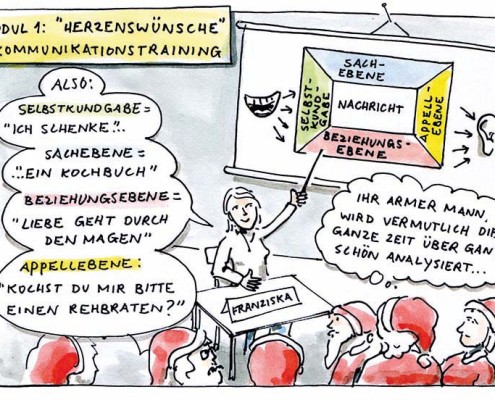 ODUL 1: "HERZENSWÜNSCHE"
KOMMUNIKATIONSTRAINING
ALSO:
SELBSTKUNDGABE =
"ICH SCHENKE"...
SACHEBENE =
"...EIN KOCHBUCH"
BEZIEHUNGSEBENE =
"LIEBE GEHT DURCH
DEN MAGEN"
APPELLEBENE:
"KOCHST DU MIR BITTE
EINEN REHBRATEN?"
SACH-
EBENE
SELBST-
KUND-
GABE
NACHRICHT
APPELL-
EBENE
BEZIEHUNGS-
EBENE
IHR ARMER MANN,
WIRD VERMUTLICH DIE
GANZE ZEIT ÜBER GAN
SCHÖN ANALYSIERT...
FRANZISKA